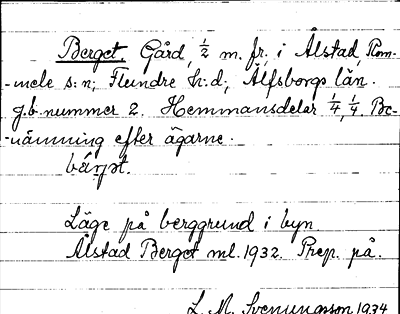 Berget. Gård, ½ m. fr. i Ålstad, Rom-
-mele s:n; Flundre h:d; Älfsborgs län.
j.b. nummer 2. Hemmansdelar ¼, ¼. Be-
-nämning efter ägarne.
Läge på berggrund i byn
Ålstad Berget ml. 1932. Prep. på.
L. M. Svenungsson 1934